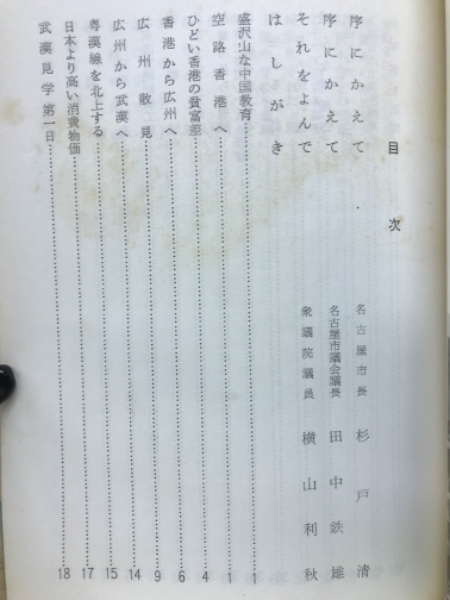 目次
序にかえて 名古屋市長 杉戸清
序にかえて 名古屋市議会議長 田中鉄雄
それをよんで 衆議院議員 横山利秋
はしがき
盛沢山な中国教育 1
空路香港へ 1
ひどい香港の貧富差 4
香港から広州へ 6
広州散見 9
広州から武漢へ 14
粤漢線を北上する 15
日本より高い消費物価 17
武漢見学第一日 18